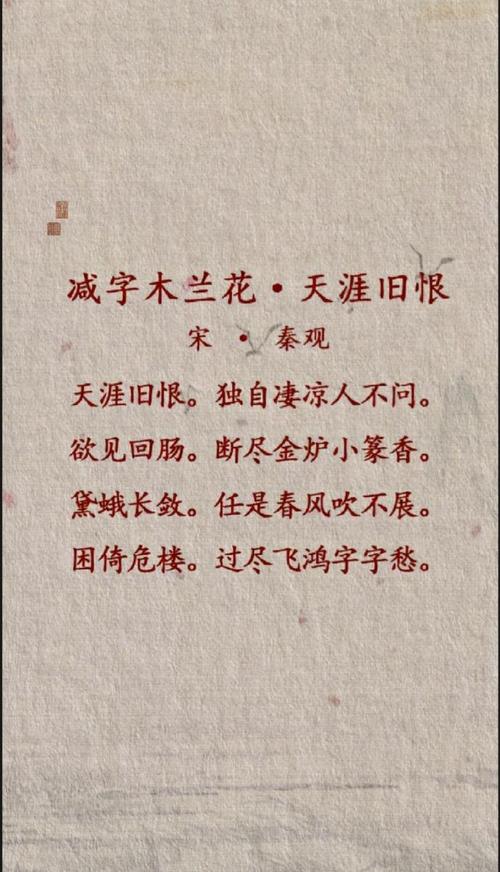 减字木兰花·天涯旧恨
宋·秦观
天涯旧恨。独自凄凉人不问。
欲见回肠。断尽金炉小篆香。
黛蛾长敛。任是春风吹不展。
困倚危楼。过尽飞鸿字字愁。